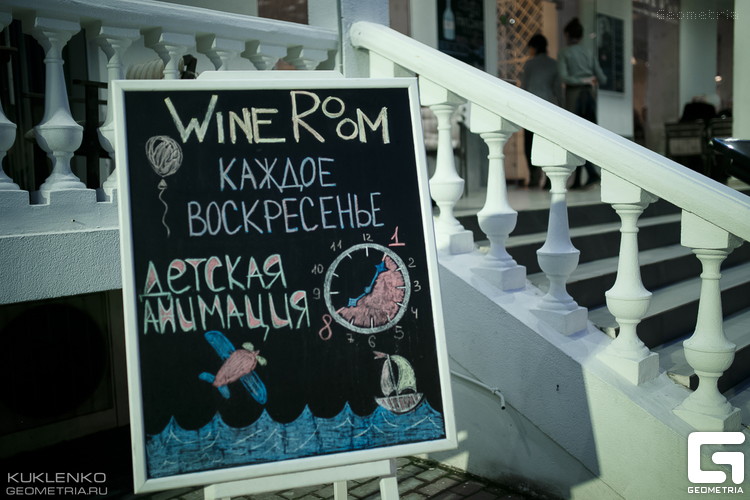 Geometria
WINE ROOM
КАЖДОЕ
ВОСКРЕСЕНЬЕ
ДЕТСКАЯ
АНИМАЦИЯ
11 12 1
10 2
9 3
8 4
7 6 5
KUKLENKO
GEOMETRIA.RU
G
GEOMETRIA